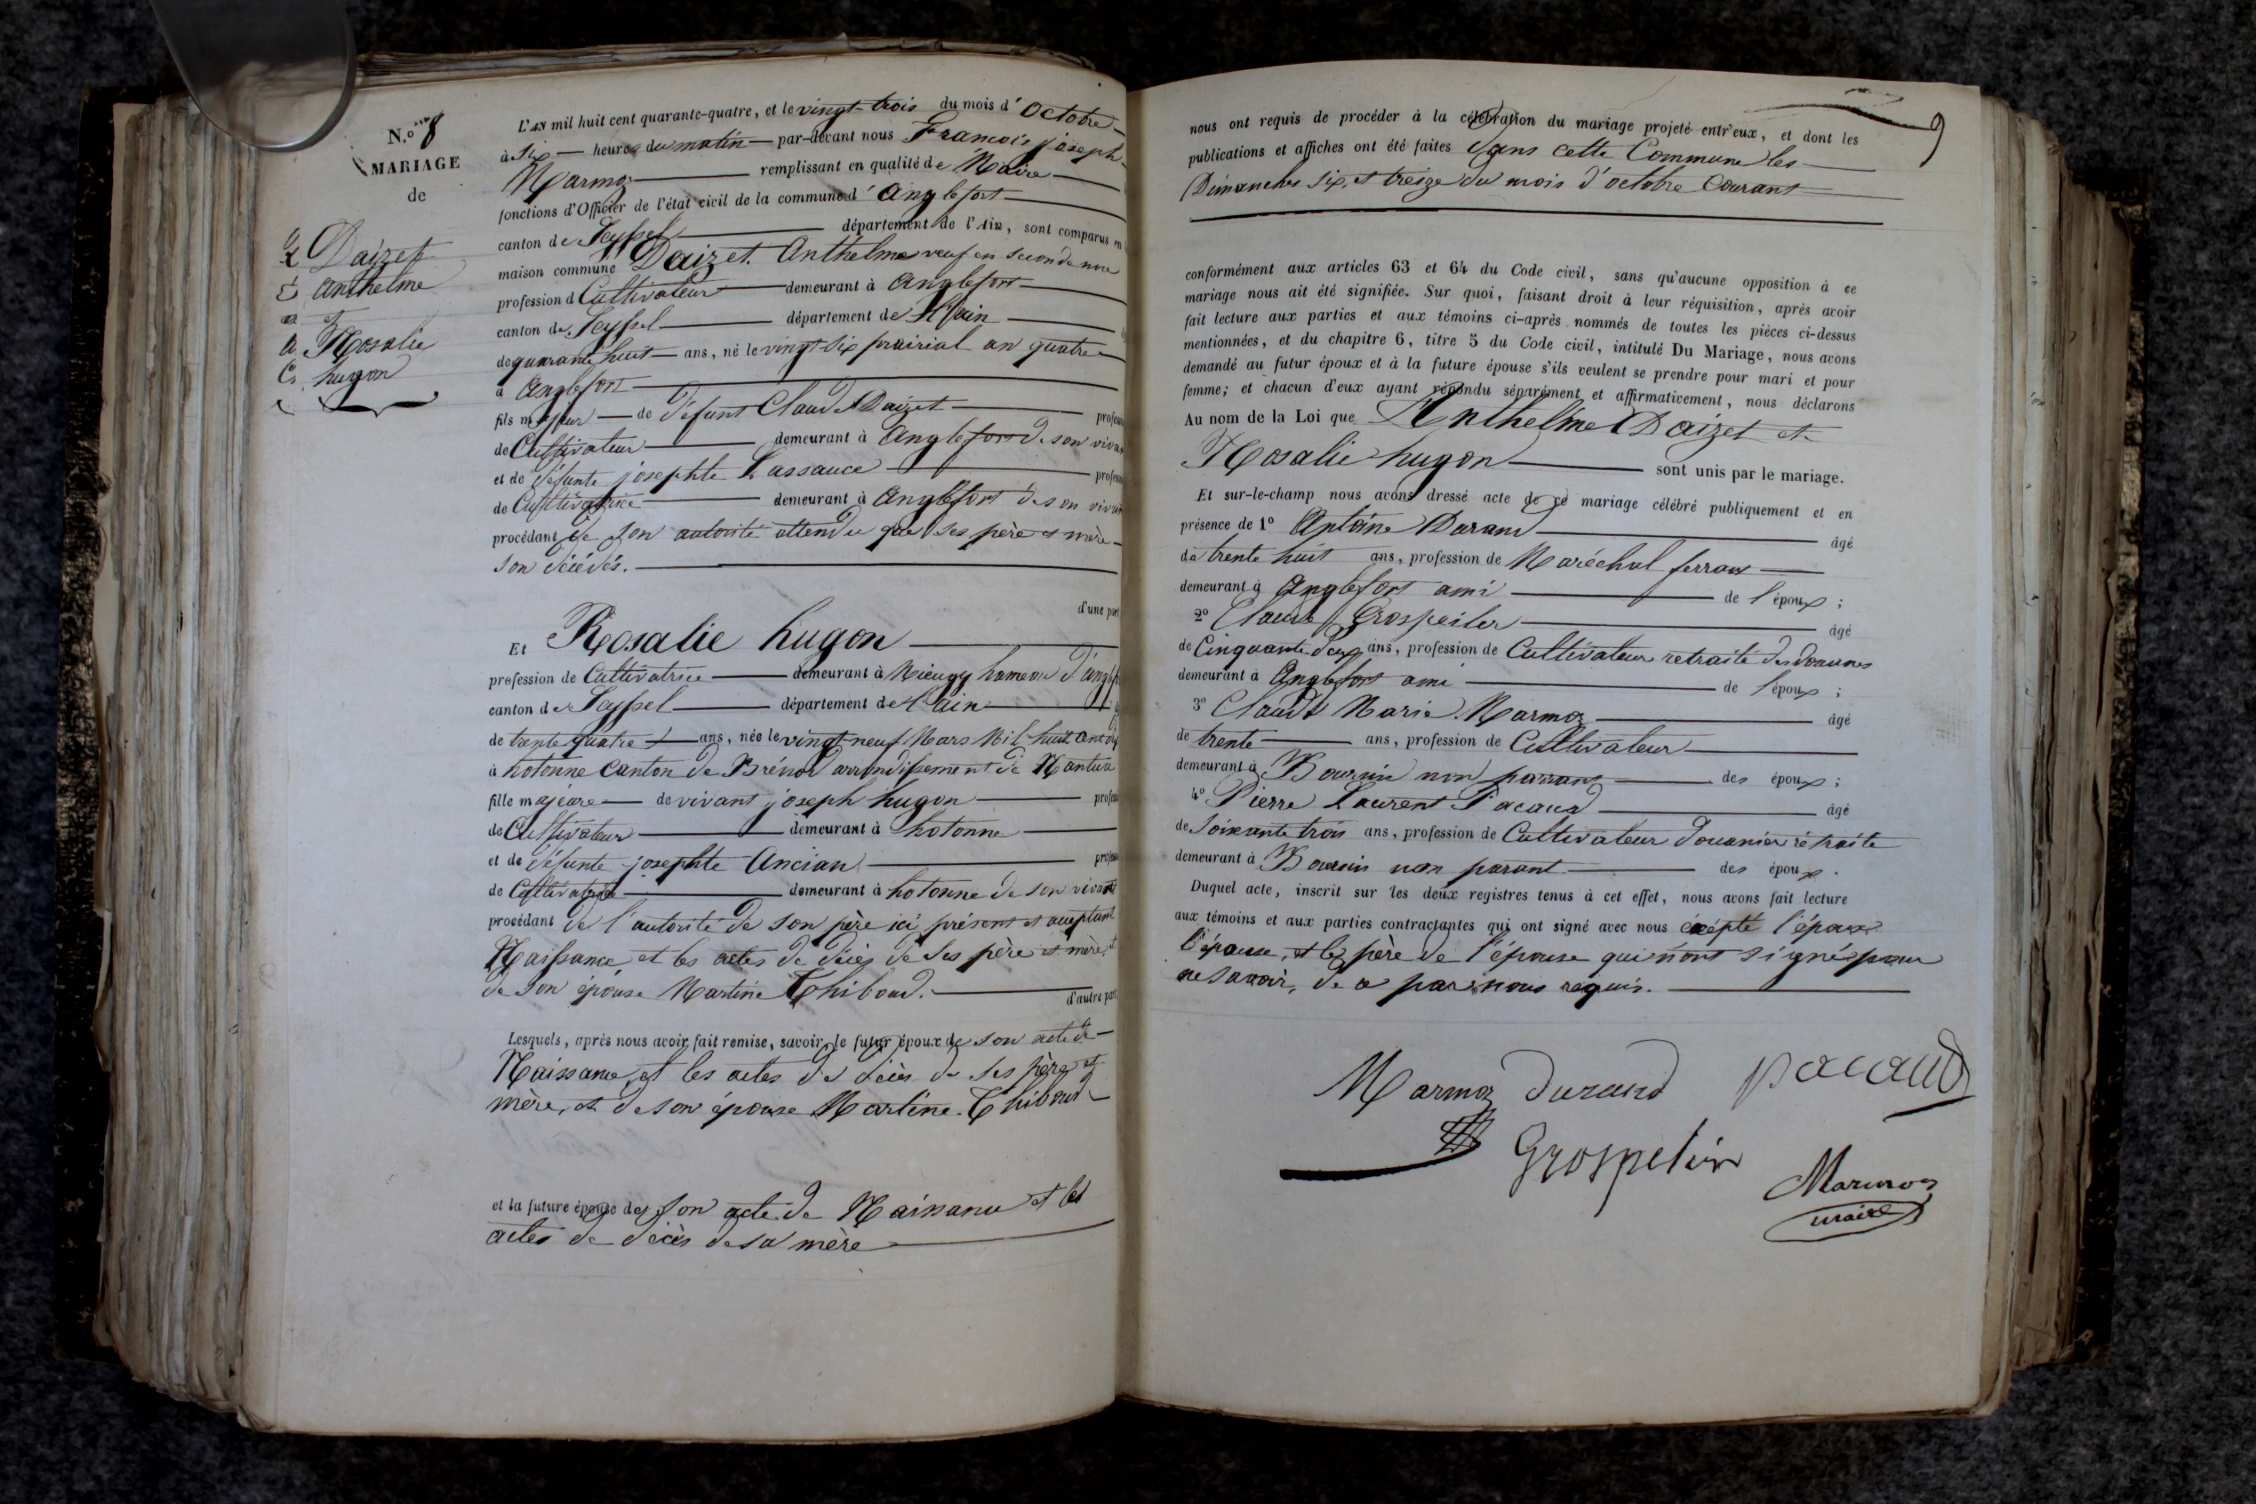 N.o 8
MARIAGE
de
Daizet
anthelme
&
Rosalie
hugon
L'AN mil huit cent quarante-quatre, et le vingt-trois du mois d' Octobre
à Six heures du matin par-devant nous Francois joseph
Marmoz remplissant en qualité de Maire
fonctions d'Officier de l'état civil de la commune d' anglefort
canton de Seyssel département de l'Ain, sont comparus en
maison commune Daizet Anthelme veuf en seconde noce
profession d Cultivateur demeurant à anglefort
canton de Seyssel département de l'ain
de quarante huit ans, né le vingt-Six prairial an quatre
à anglefort
fils majeur de défunt Claude Daizet profession
de Cultivateur demeurant à anglefort de son vivant
et de défunte josephte Lassauce profession
de Cultivatrice demeurant à anglefort de son vivant
procédant de son autorité attendu que ses père et mère
son décédés.
d'une part
Et Rosalie hugon
profession de Cultivatrice demeurant à Mieugy hameau d'anglefort
canton de Seyssel département de l'ain
de trente quatre ans, née le vingt neuf Mars Mil huit cent dix
à hotonne Canton de Brénod arrondissement de Nantua
fille majeure de vivant joseph hugon profession
de Cultivateur demeurant à hotonne
et de défunte josephte Ancian profession
de Cultivatrice demeurant à hotonne de son vivant
procédant de l'autorité de son père ici présent et acceptant
Naissance et les actes de décès de ses père et mère et
de son épouse Martine Thiboud.
d'autre part
Lesquels, après nous avoir fait remise, savoir, le futur époux de son acte de
Naissance, et les actes de décès de ses père et
mère, et de son épouse Martine Thiboud
et la future épouse de son acte de Naissance et les
actes de décès de sa mère
9
nous ont requis de procéder à la célébration du mariage projeté entr'eux, et dont les
publications et affiches ont été faites dans cette Commune les
Dimanches Six, et treize du mois d'octobre Courant
conformément aux articles 63 et 64 du Code civil, sans qu'aucune opposition à ce
mariage nous ait été signifiée. Sur quoi, faisant droit à leur réquisition, après avoir
fait lecture aux parties et aux témoins ci-après nommés de toutes les pièces ci-dessus
mentionnées, et du chapitre 6, titre 5 du Code civil, intitulé Du Mariage, nous avons
demandé au futur époux et à la future épouse s'ils veulent se prendre pour mari et pour
femme; et chacun d'eux ayant répondu séparément et affirmativement, nous déclarons
Au nom de la Loi que Anthelme Daizet et
Rosalie hugon sont unis par le mariage.
Et sur-le-champ nous avons dressé acte de ce mariage célébré publiquement et en
présence de 1o Antoine Durand âgé
de trente huit ans, profession de Maréchal ferrant
demeurant à anglefort ami de l'époux;
2o Claude Grospeiler âgé
de Cinquante deux ans, profession de Cultivateur retraité des douannes
demeurant à anglefort ami de l'époux;
3o Claude Marie Marmoz âgé
de trente ans, profession de Cultivateur
demeurant à Boursin non parans des époux;
4o Pierre Laurent Pacaud âgé
de Soixante trois ans, profession de Cultivateur douanier rétraité
demeurant à Boursin non parant des époux.
Duquel acte, inscrit sur les deux registres tenus à cet effet, nous avons fait lecture
aux témoins et aux parties contractantes qui ont signé avec nous éxépté l'époux
l'épouse, et le père de l'épouse qui n'ont signé pour
ne savoir, de a par nous requis.
Marmoz durand pacaud
Grospelier
Marmoz
maire